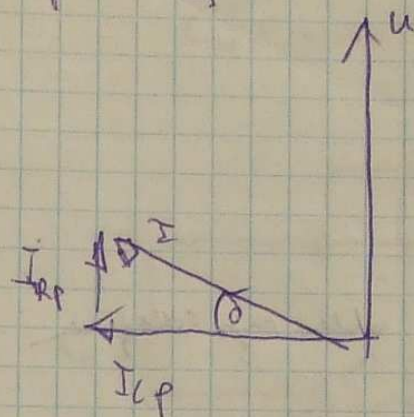 u
I
I_Rp
δ
I_Cp